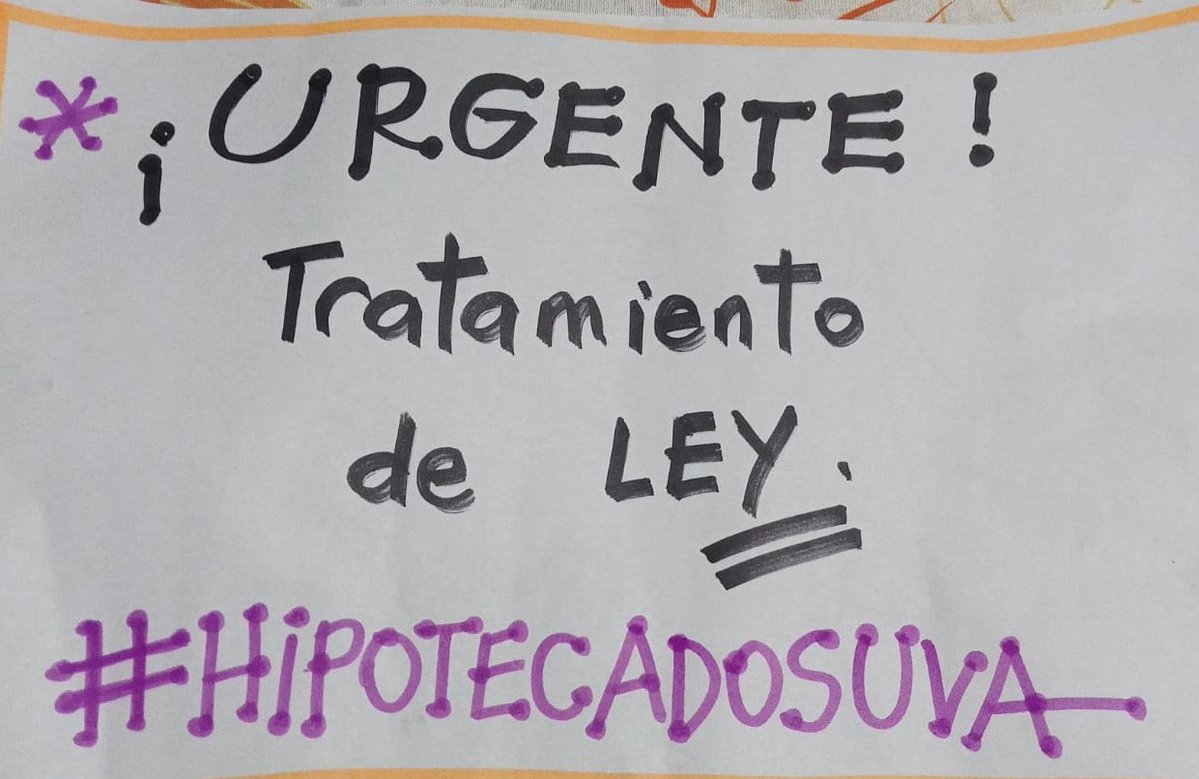 * ¡URGENTE!
Tratamiento
de LEY.
#HiPOTECADOSUVA